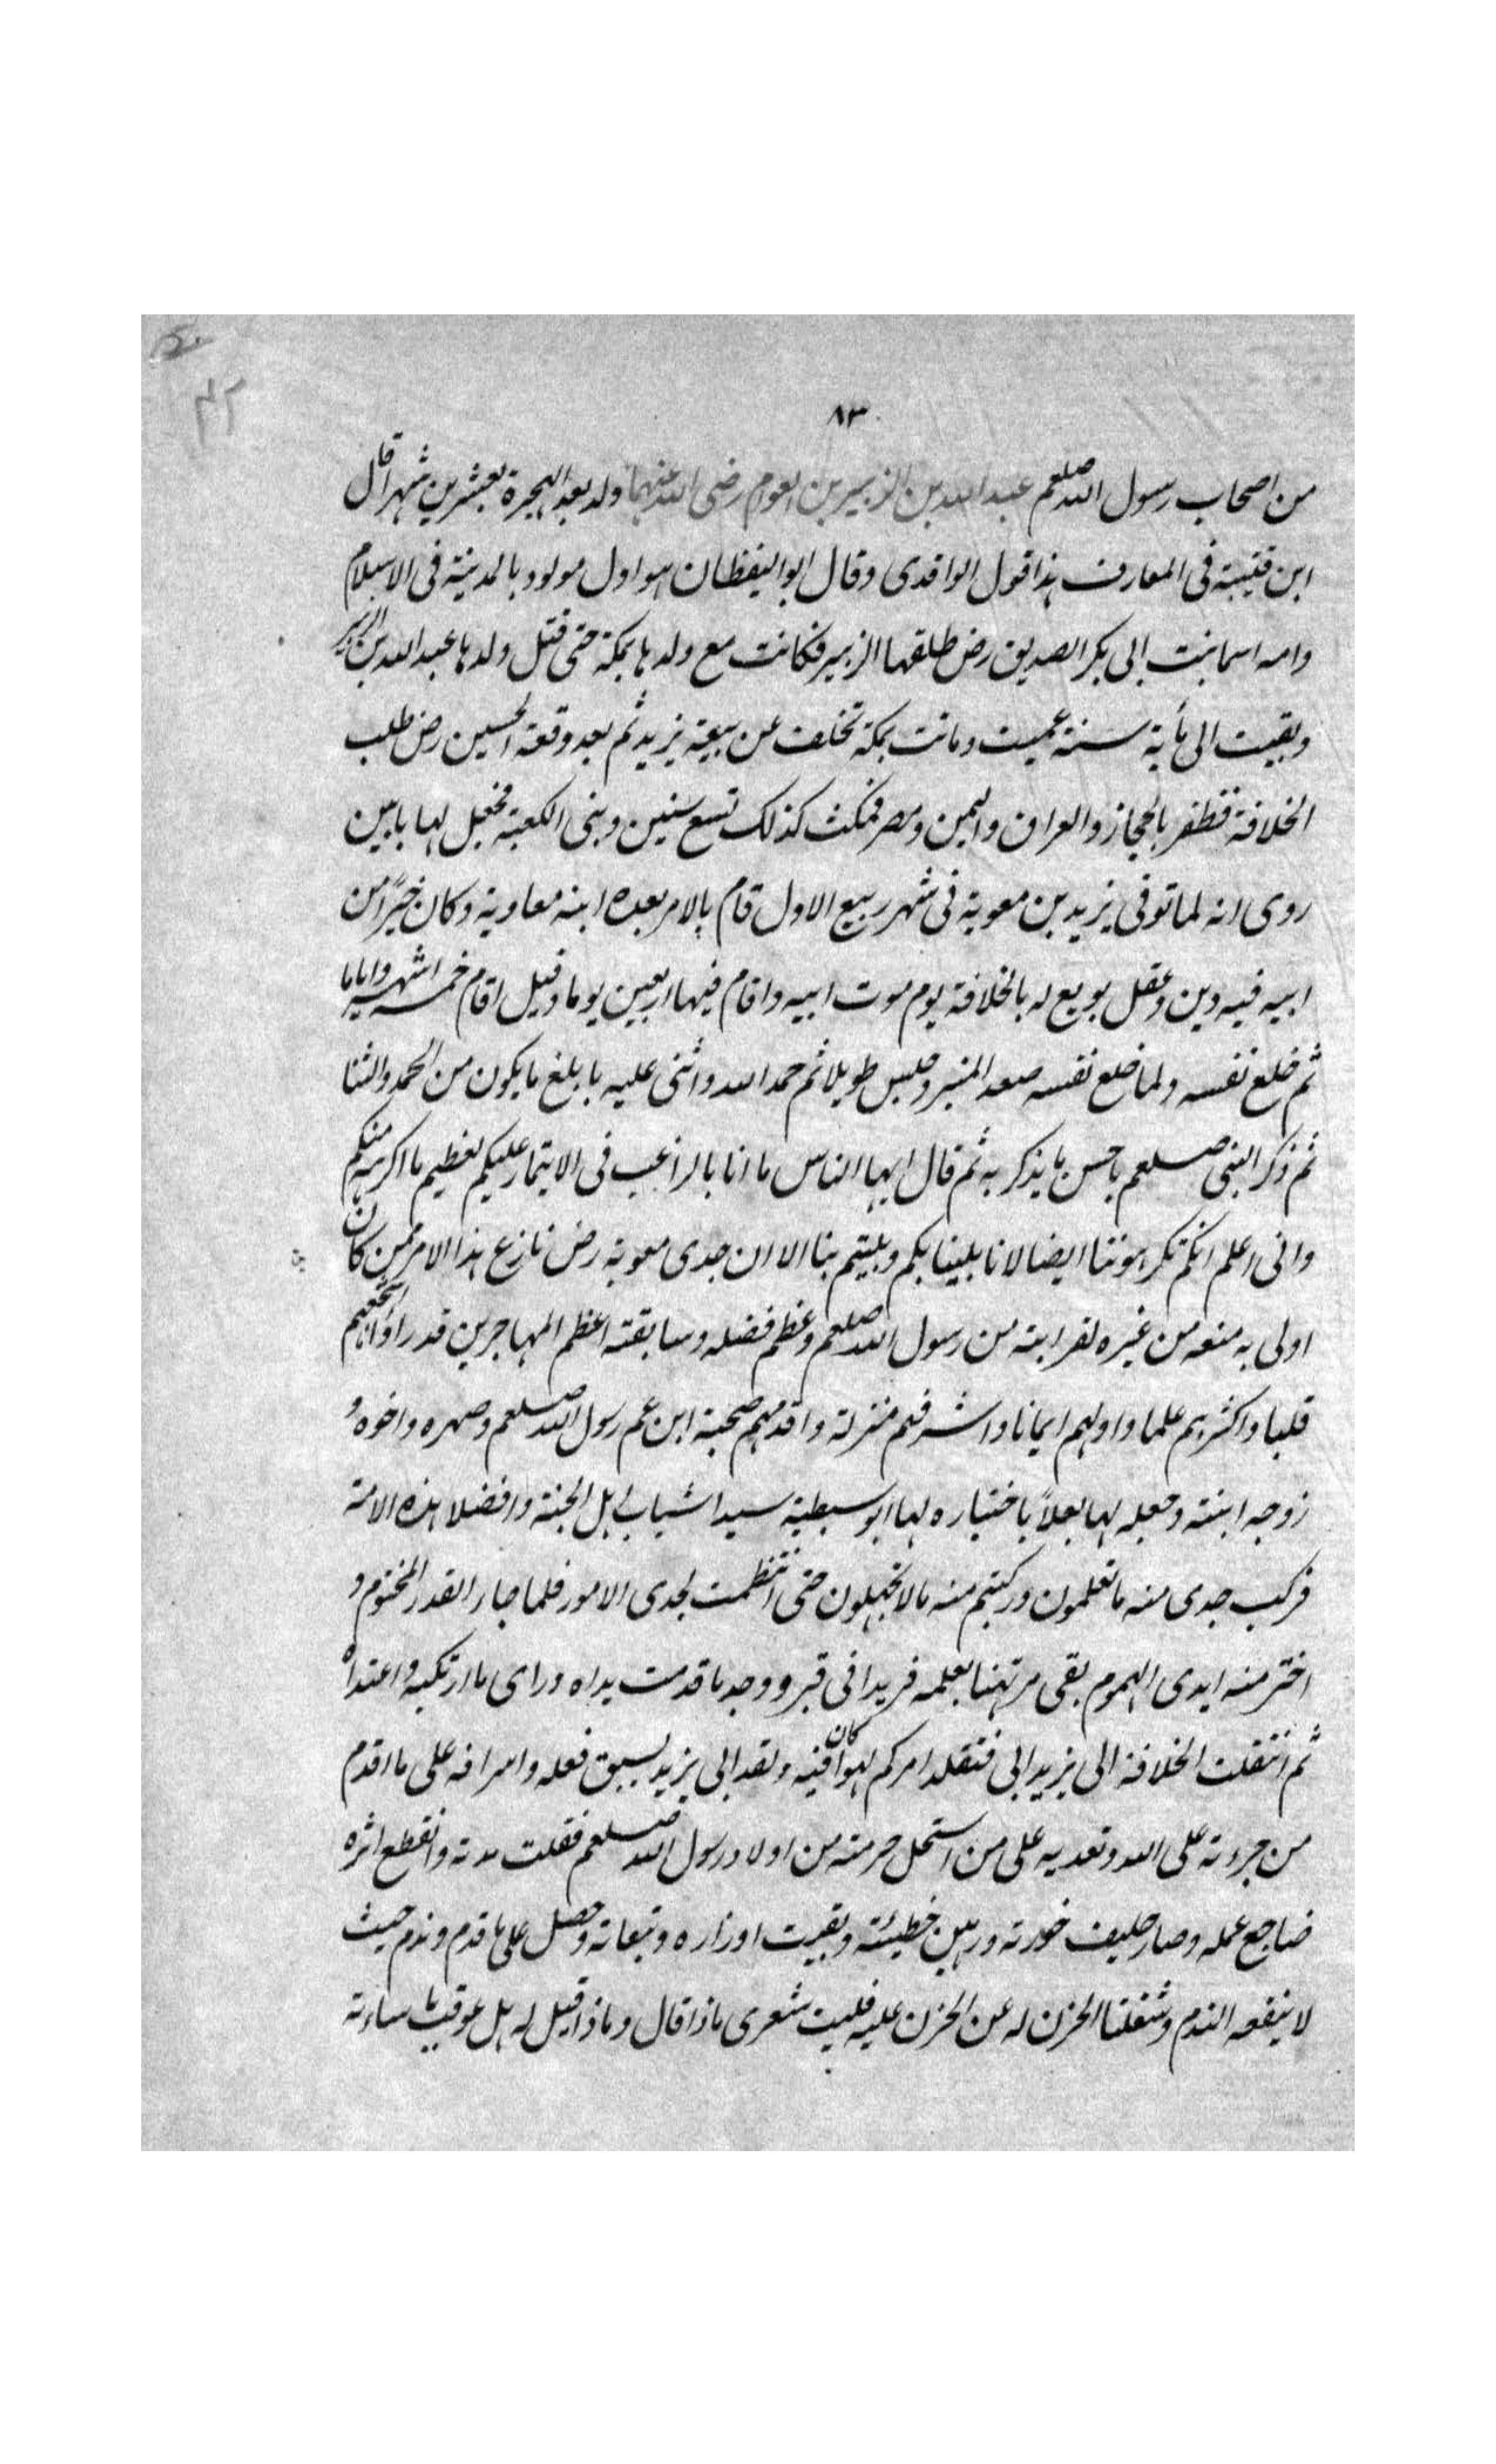 ٨٣
من اصحاب رسول الله صلعم عبد الله بن الزبير بن العوام رضى الله عنهما ولد بعد الهجرة بعشرين شهرا قال
ابن قتيبة فى المعارف هذا قول الواقدى وقال ابو اليقظان هو اول مولود بالمدينة فى الاسلام
وامه اسما بنت ابى بكر الصديق رض طلقها الزبير فكانت مع ولدها بمكة حتى قتل ولدها عبد الله بن الزبير
وبقيت الى مأية سنة عميت وماتت بمكة تخلف عن بيعة يزيد ثم بعد وقعة الحسين رض طلب
الخلافة فظفر بالحجاز والعراق واليمن ومصر فمكث كذلك تسع سنين وبنى الكعبة فجعل لها بابين
روى انه لما توفى يزيد بن معوية فى شهر ربيع الاول قام بالامر بعده ابنه معاوية وكان خيرًا من
ابيه فيه دين وعقل بويع له بالخلافة يوم موت ابيه واقام فيها اربعين يوما وقيل اقام خمسة اشهر واياما
ثم خلع نفسه ولما خلع نفسه صعد المنبر وجلس طويلا ثم حمد الله واثنى عليه بابلغ ما يكون من الحمد والثنا
ثم ذكر النبى صلعم باحسن ما يذكر به ثم قال ايها الناس ما انا بالراغب فى الايتمار عليكم لعظيم ما اكرهه منكم
وانى اعلم انكم تكرهوننا ايضا لانا بلينا بكم وبليتم بنا الا ان جدى معوية رض نازع هذا الامر ممن كان
اولى به منه من غيره لقرابته من رسول الله صلعم وعظم فضله وسابقته اعظم المهاجرين قدرا واشجعهم
قلبا واكثرهم علما واولهم ايمانا واشرفهم منزلة واقدمهم صحبة ابن عم رسول الله صلعم وصهره واخوه و
زوجه ابنته وجعله لها بعلاً باختياره لها ابو سبطيه سيدا شباب اهل الجنة وافضلا هذه الامة
فركب جدى منه ما تعلمون وركبتم منه ما لا تجهلون حتى انتظمت لجدى الامور فلما جار القدر المختوم و
اختر منه ايدى الهموم بقى مرتهنا بعلمه فريدا فى قبر ووجد ما قدمت يداه وراى ما ارتكبه واعتداه
ثم انتقلت الخلافة الى يزيد ابى فتقلد امركم لهوا كان فيه ولقد ابى يزيد لسبق فعله واسرافه على ما اقدم
من جرءته على الله وتعديه على من استحل حرمته من اولاد رسول الله صلعم فقلت مدته وانقطع اثره
ضاجع عمله وصار حليف حفرته ورهين خطيئته وبقيت اوزاره وتبعاته وحصل على ما قدم وندم حيث
لا ينفعه الندم وشغلنا الحزن له عن الحزن عليه فليت شعرى ماذا قال وماذا قيل له هل عوقب باساءته